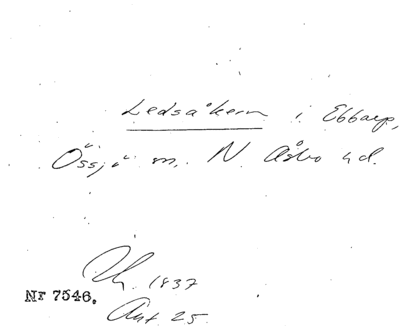 Ledsåkern i Ebbarp,
Össjö m. N. Åsbo hd.
1837
Nr 7546.
Akt 25.